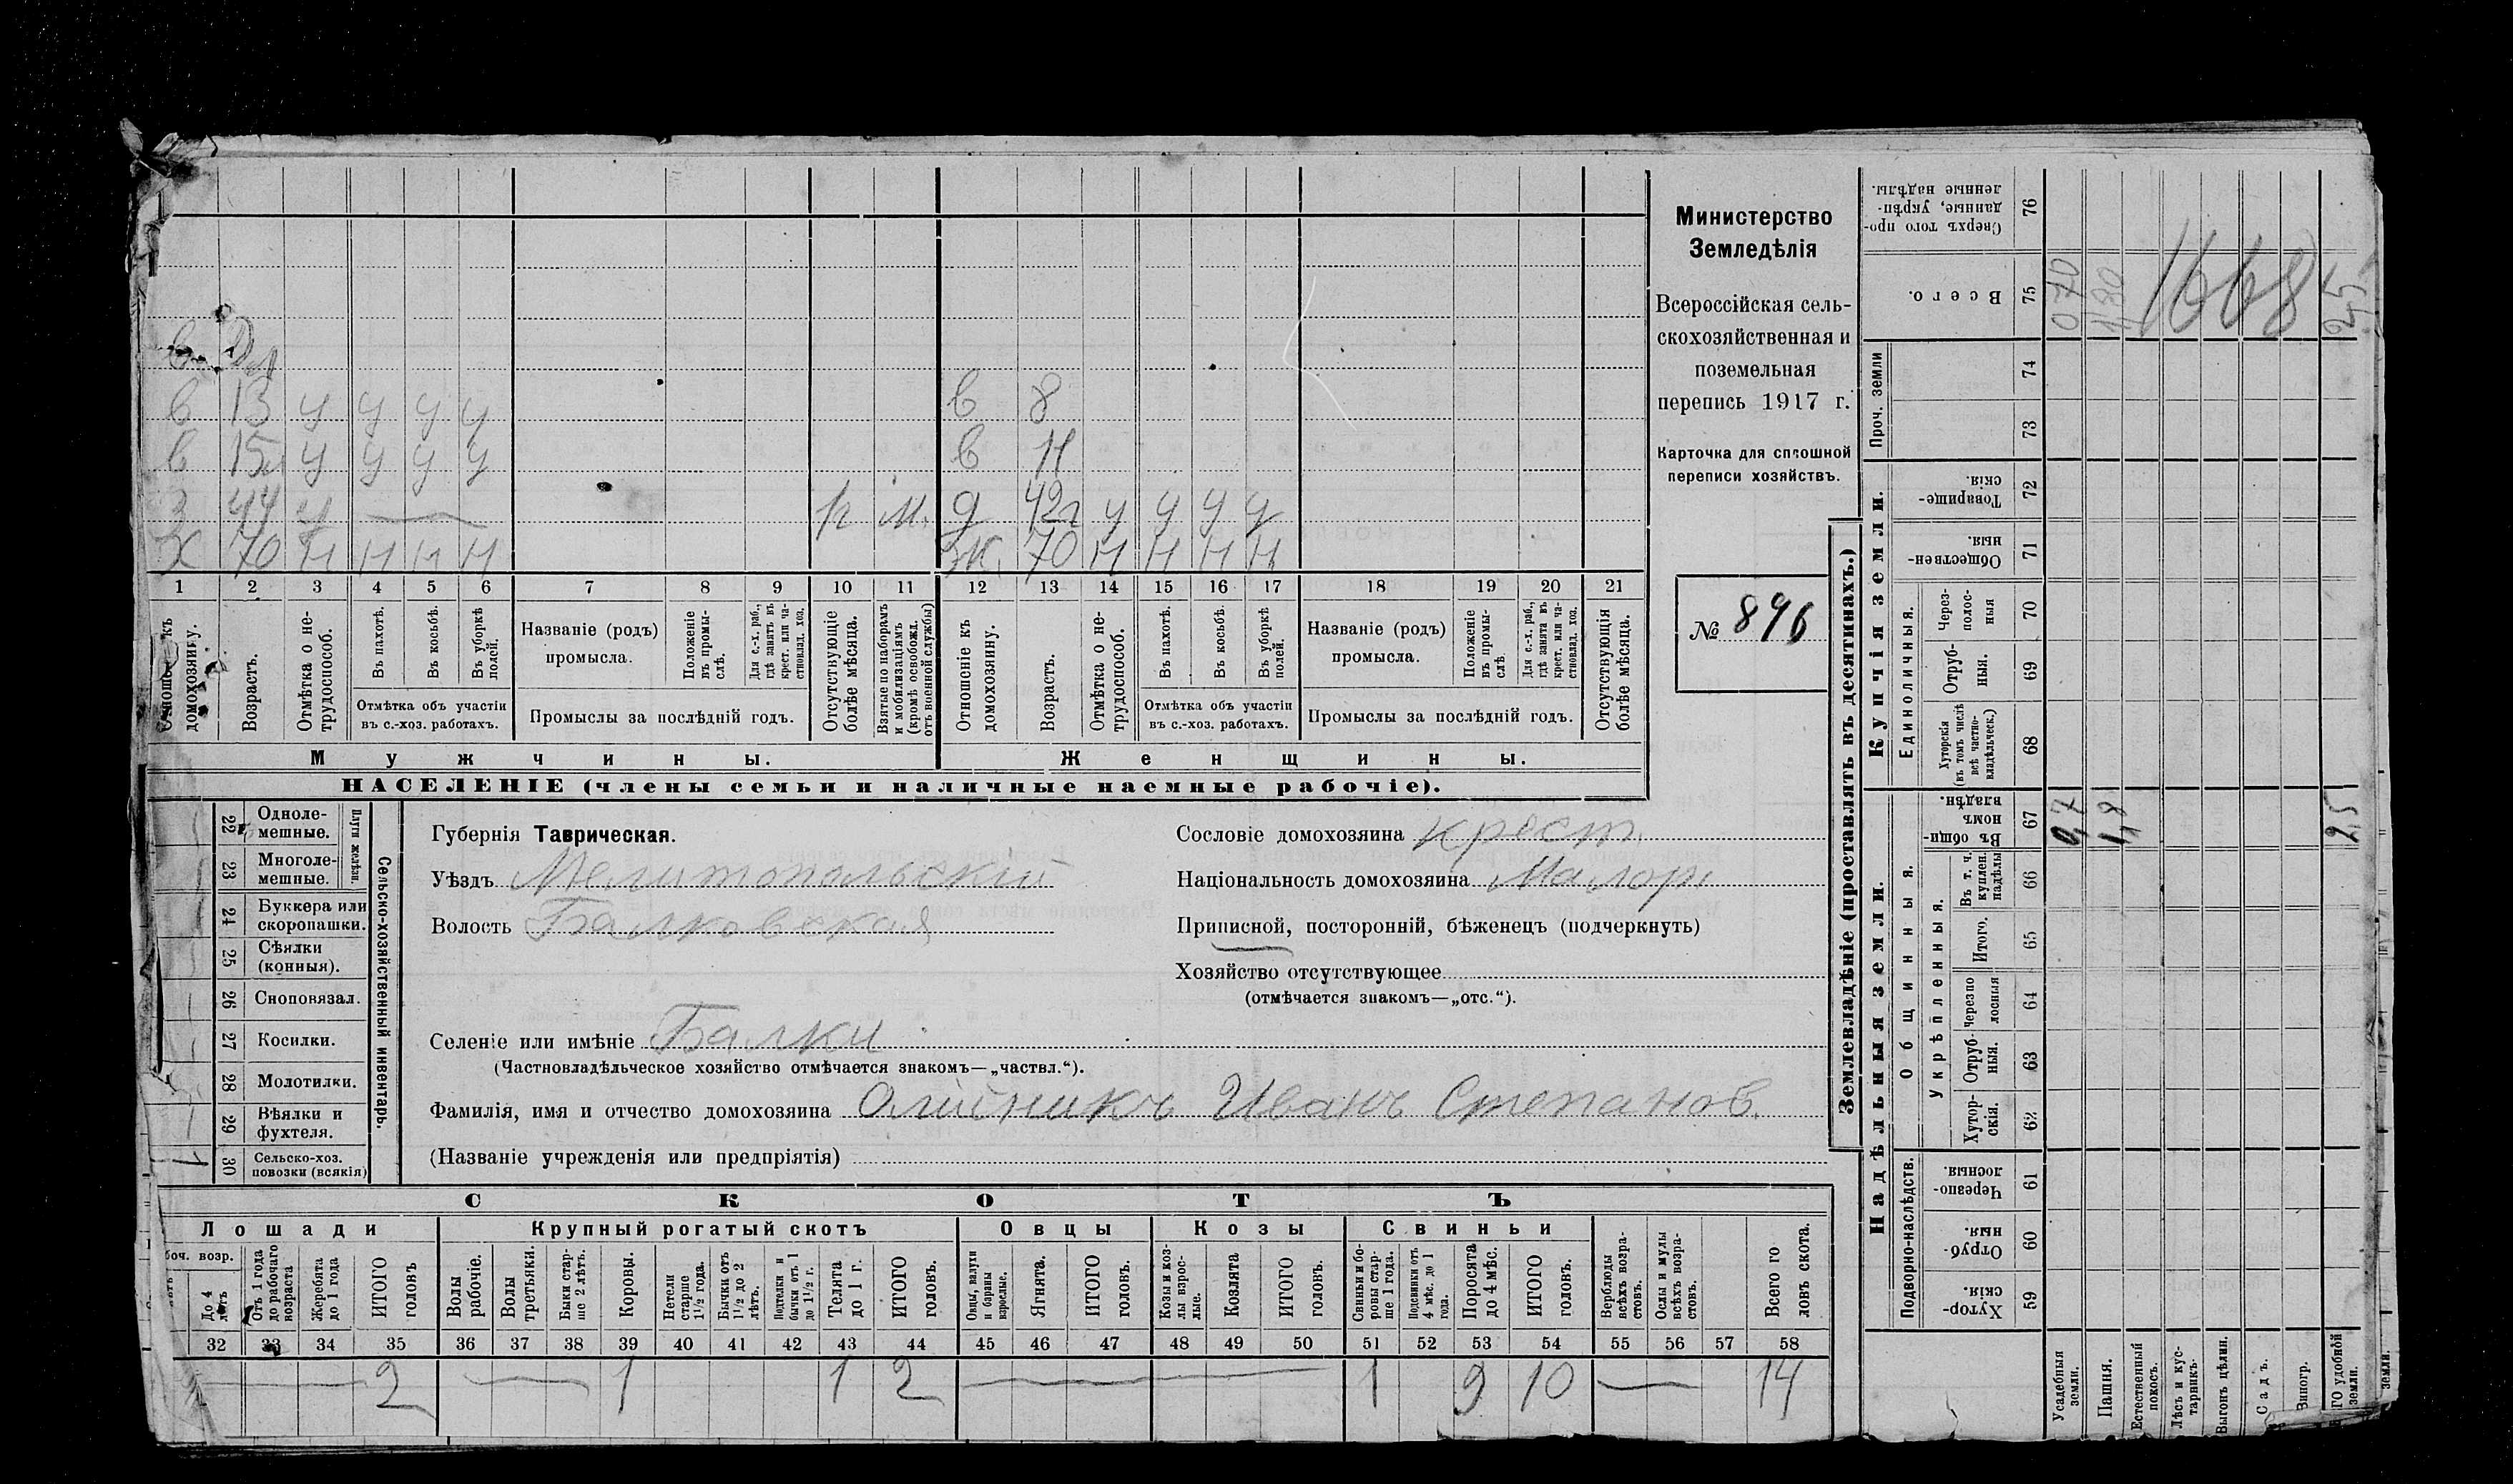 в
в 13 у у у у в 8
в 15 у у у у в 11
з 44 у к м. д 42 г у у у у
Х 70 н н н н Ж. 70 н н н н
1 2 3 4 5 6 7 8 9 10 11 12 13 14 15 16 17 18 19 20 21
Отношен. къ домохозяину.
Возрастъ.
Отмѣтка о нетрудоспособ.
Въ пахотѣ.
Въ косьбѣ.
Въ уборкѣ полей.
Отмѣтка объ участіи въ с.-хоз. работахъ.
Названіе (родъ) промысла.
Положеніе въ промыслѣ.
Для с.-х. раб., гдѣ занятъ въ крест. или частновлад. хоз.
Промыслы за послѣдній годъ.
Отсутствующіе болѣе мѣсяца.
Взятые по наборамъ и мобилизаціямъ (кромѣ освобожд. отъ военной службы)
Отношеніе къ домохозяину.
Возрастъ.
Отмѣтка о нетрудоспособ.
Въ пахотѣ.
Въ косьбѣ.
Въ уборкѣ полей.
Отмѣтка объ участіи въ с.-хоз. работахъ.
Названіе (родъ) промысла.
Положеніе въ промыслѣ
Для с.-х. раб., гдѣ занята въ крест. или частновлад. хоз.
Промыслы за послѣдній годъ.
Отсутствующія болѣе мѣсяца.
Мужчины.
Женщины.
НАСЕЛЕНІЕ (члены семьи и наличные наемные рабочіе).
Министерство
Земледѣлія
Всероссійская сель-
скохозяйственная и
поземельная
перепись 1917 г.
Карточка для сплошной
переписи хозяйствъ.
№ 896
22 Одноле-мешные.
23 Многоле-мешные.
Плуги желѣзн.
24 Буккера или скоропашки.
25 Сѣялки (конныя).
26 Сноповязал.
27 Косилки.
28 Молотилки.
29 Вѣялки и фухтеля.
30 Сельско-хоз. повозки (всякія) 1
Сельско-хозяйственный инвентарь.
Губернія Таврическая.
Уѣздъ Мелитопольскій
Волость Балковская
Сословіе домохозяина крест.
Національность домохозяина Малор
Приписной, посторонній, бѣженецъ (подчеркнуть)
Хозяйство отсутствующее
(отмѣчается знакомъ—„отс.“).
Селеніе или имѣніе Балки
(Частновладѣльческое хозяйство отмѣчается знакомъ—„частвл.“).
Фамилія, имя и отчество домохозяина Олійникъ Иванъ Степанов.
(Названіе учрежденія или предпріятія)
СКОТЪ
Лошади
Крупный рогатый скотъ
Овцы
Козы
Свиньи
боч. возр.
До 4 лѣтъ
Отъ 1 года до рабочаго возраста
Жеребята до 1 года
ИТОГО головъ
Волы рабочіе.
Волы третьяки.
Быки старше 2 лѣтъ.
Коровы.
Нетели старше 1½ года.
Бычки отъ 1½ до 2 лѣтъ.
Подтелки и бычки отъ 1 до 1½ г.
Телята до 1 г.
ИТОГО головъ.
Овцы, валухи и бараны взрослые.
Ягнята.
ИТОГО головъ.
Козы и козлы взрослые.
Козлята
ИТОГО головъ.
Свиньи и боровы старше 1 года.
Подсвинки отъ 4 мѣс. до 1 года.
Поросята до 4 мѣс.
ИТОГО головъ.
Верблюды всѣхъ возрастовъ.
Ослы и мулы всѣхъ возрастовъ.
Всего головъ скота.
32 33 34 35 36 37 38 39 40 41 42 43 44 45 46 47 48 49 50 51 52 53 54 55 56 57 58
2 1 1 2 1 9 10 14
Землевладѣніе (проставлять въ десятинахъ.)
Купчія земли.
Надѣльныя земли.
Сверхъ того проданные, укрѣпленные надѣлы. 76
Всего. 75 0 70 1 80 1668 2,5
Проч. земли 74 73
Товарищескія. 72
Общественныя. 71
Единоличныя.
Черезполосныя 70
Отрубныя. 69
Хуторскія (въ томъ числѣ всѣ частновладѣльческ.) 68
Общинныя.
Въ общинномъ владѣн. 67 0,7 1,8 2,5
Укрѣпленныя.
Въ т. ч. куплен. надѣлы 66
Итого. 65
Черезполосныя 64
Отрубныя. 63
Хуторскія. 62
Подворно-наслѣдств.
Черезполосныя. 61
Отрубныя. 60
Хуторскія. 59
Усадебныя земли.
Пашня.
Естественный покосъ.
Лѣсъ и кустарникъ.
Выгонъ цѣлин.
Садъ.
Виногр.
ГО удобной земли.
земли.